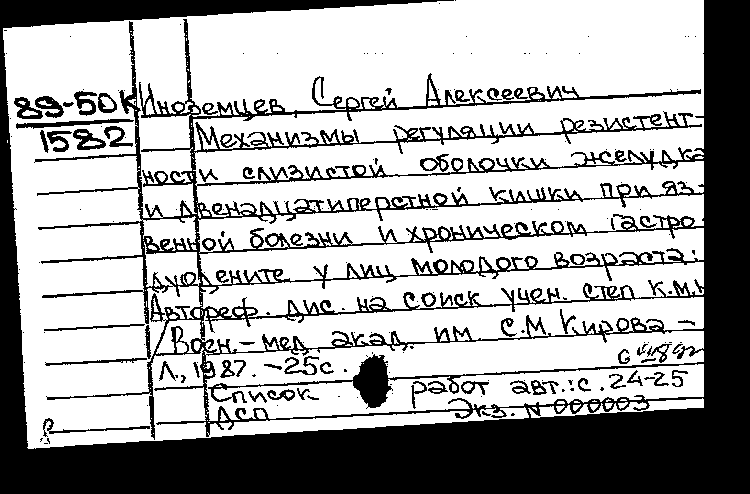 89-50К Иноземцев, Сергей Алексеевич
1582 Механизмы регуляции резистент-
ности слизистой оболочки желудка
и двенадцатиперстной кишки при яз-
венной болезни и хроническом гастро-
дуодените у лиц молодого возраста:
Автореф. дис. на соиск учен. степ к.м.н
/Воен.-мед. акад. им. С.М. Кирова. –
Л., 1987. – 25с.
Список работ авт.: с. 24-25
ДСП Экз. N 000003